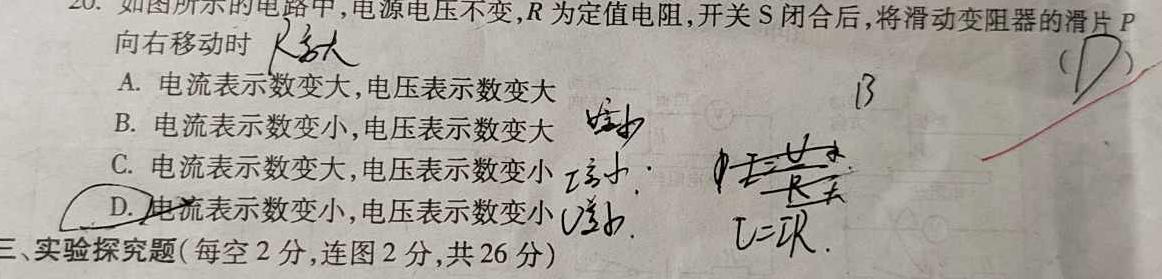 20. 如图所示的电路中,电源电压不变,R 为定值电阻,开关 S 闭合后,将滑动变阻器的滑片 P
向右移动时 R变大 (D)
A. 电流表示数变大,电压表示数变大 B
B. 电流表示数变小,电压表示数变大
C. 电流表示数变大,电压表示数变小 I变小.
D. 电流表示数变小,电压表示数变小 U变小. U=IR.
三、实验探究题(每空 2 分,连图 2 分,共 26 分)